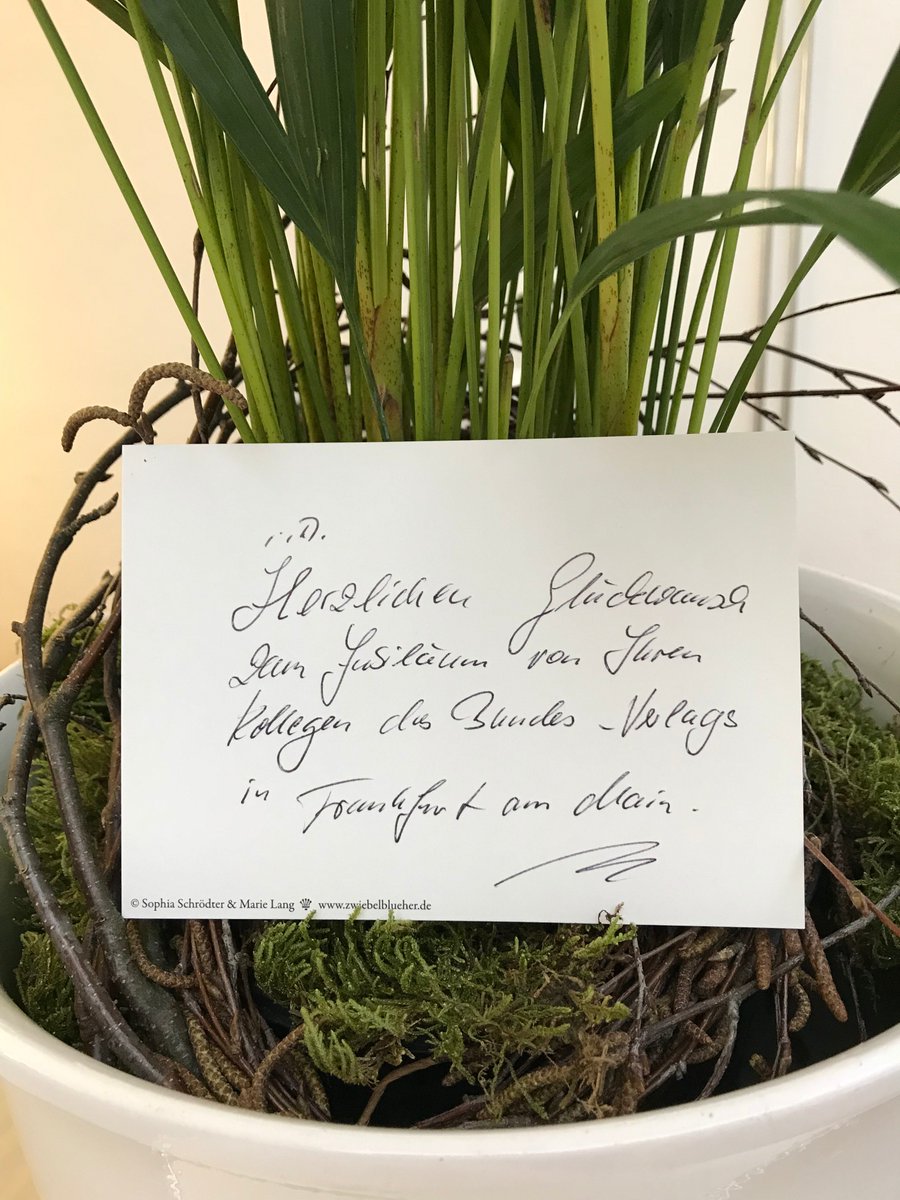 i.A.
Herzlichen Glückwunsch
zum Jubiläum von Ihren
Kollegen des Bundes-Verlags
in Frankfurt am Main.
© Sophia Schrödter & Marie Lang www.zwiebelblueher.de